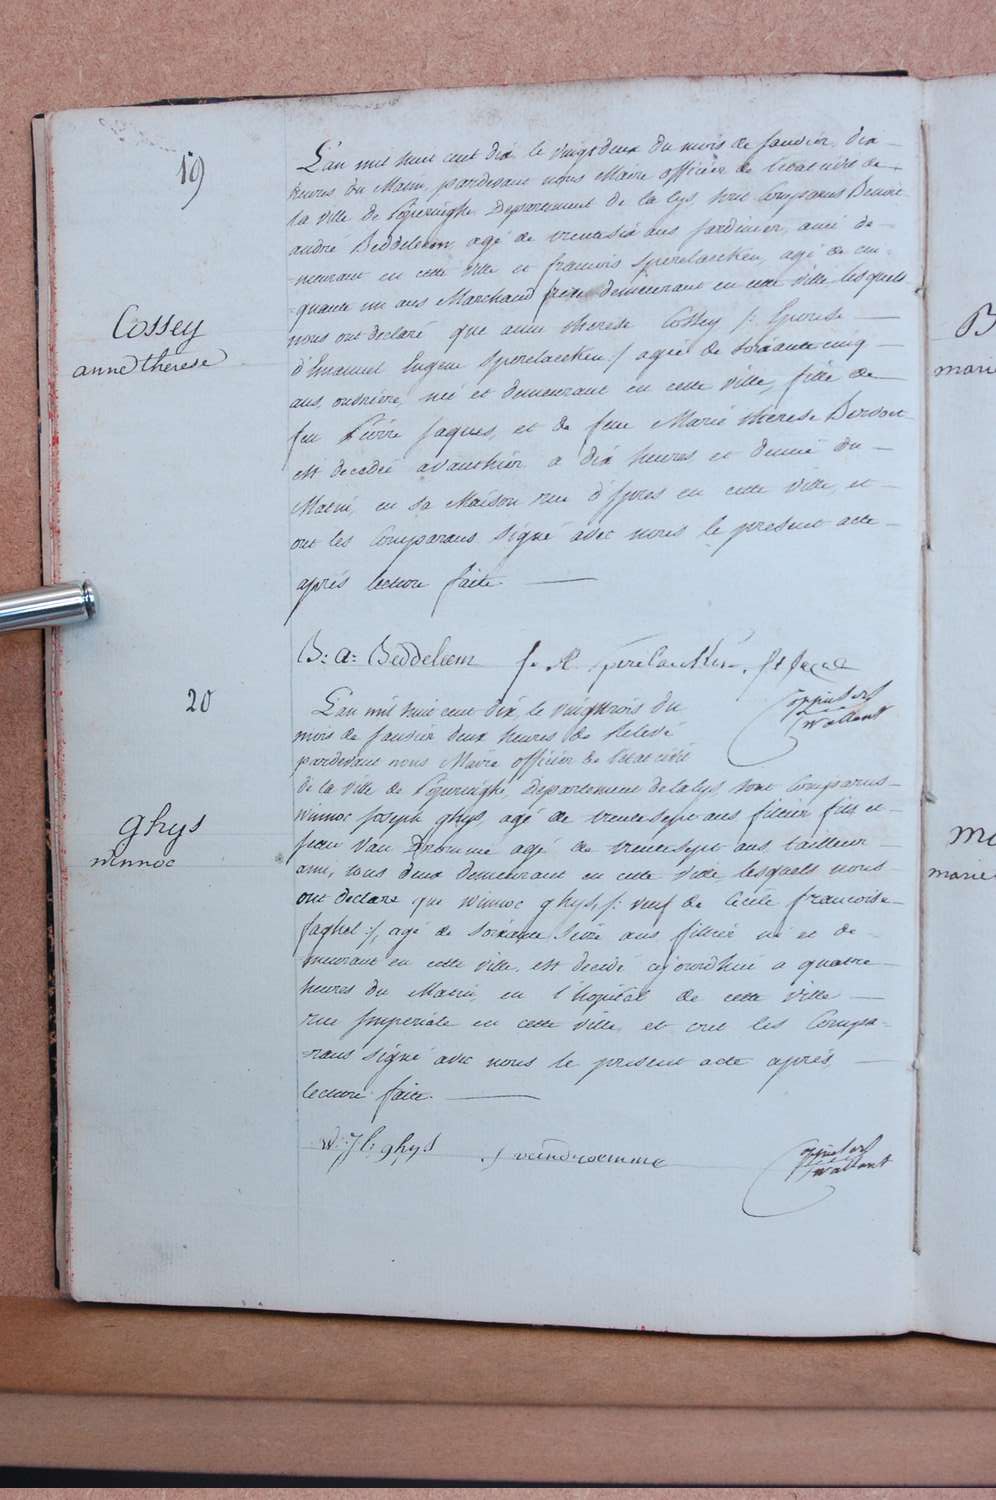 19
L'an mil huit cent dix le vingt deux du mois de janvier, dix
heures du Matin, pardevant nous Maire officier de l'etat civil de
la ville de Poperinghe Departement de la lys, sont Comparus Benoit
andré Beddeleem, agé de trentesix ans Jardinier, ami de-
=meurant en cette ville et francois Sperelaecken, agé de cin-
=quante un ans Marchand demeurant en cette ville, lesquels
nous ont declaré que anne therese Cossey /: Epouse
d'Emanuel Eugene Sperelaecken :/ agée de soixante cinq
ans, ouvriere, né et demeurant en cette ville, fille de
feu Pierre Jaques, et de feue Marie therese
est decedée avanthier a dix heures et demie du
Matin, en sa Maison rue d'Ypres en cette ville, et
ont les Comparans signé avec nous le present acte
après lecture faite.
Cossey
anne therese
B: a: Beddeleem f.
20
L'an mil huit cent dix, le vingttrois du
mois de janvier deux heures de Relevé
pardevant nous Maire officier de l'etat civil
de la ville de Poperinghe, Departement de la lys, sont Comparus
Winnoc Joseph ghys, agé de trentesept ans filtier fils et
jean Van Dromme agé de trentesept ans, tailleur
ami, tous deux demeurant en cette ville, lesquels nous
ont declaré que winnoc ghys /: veuf de Cécile francoise
:/, agé de soixante ans filtier né et de-
=meurant en cette ville, est decedé cejourdhui a quatre
heures du Matin, en l'hopital de cette ville
rue Imperiale en cette ville, et ont les Compa-
=rans signé avec nous le present acte après
lecture faite.
ghys
winnoc
W: J: ghys J vandromme
B
marie
marie